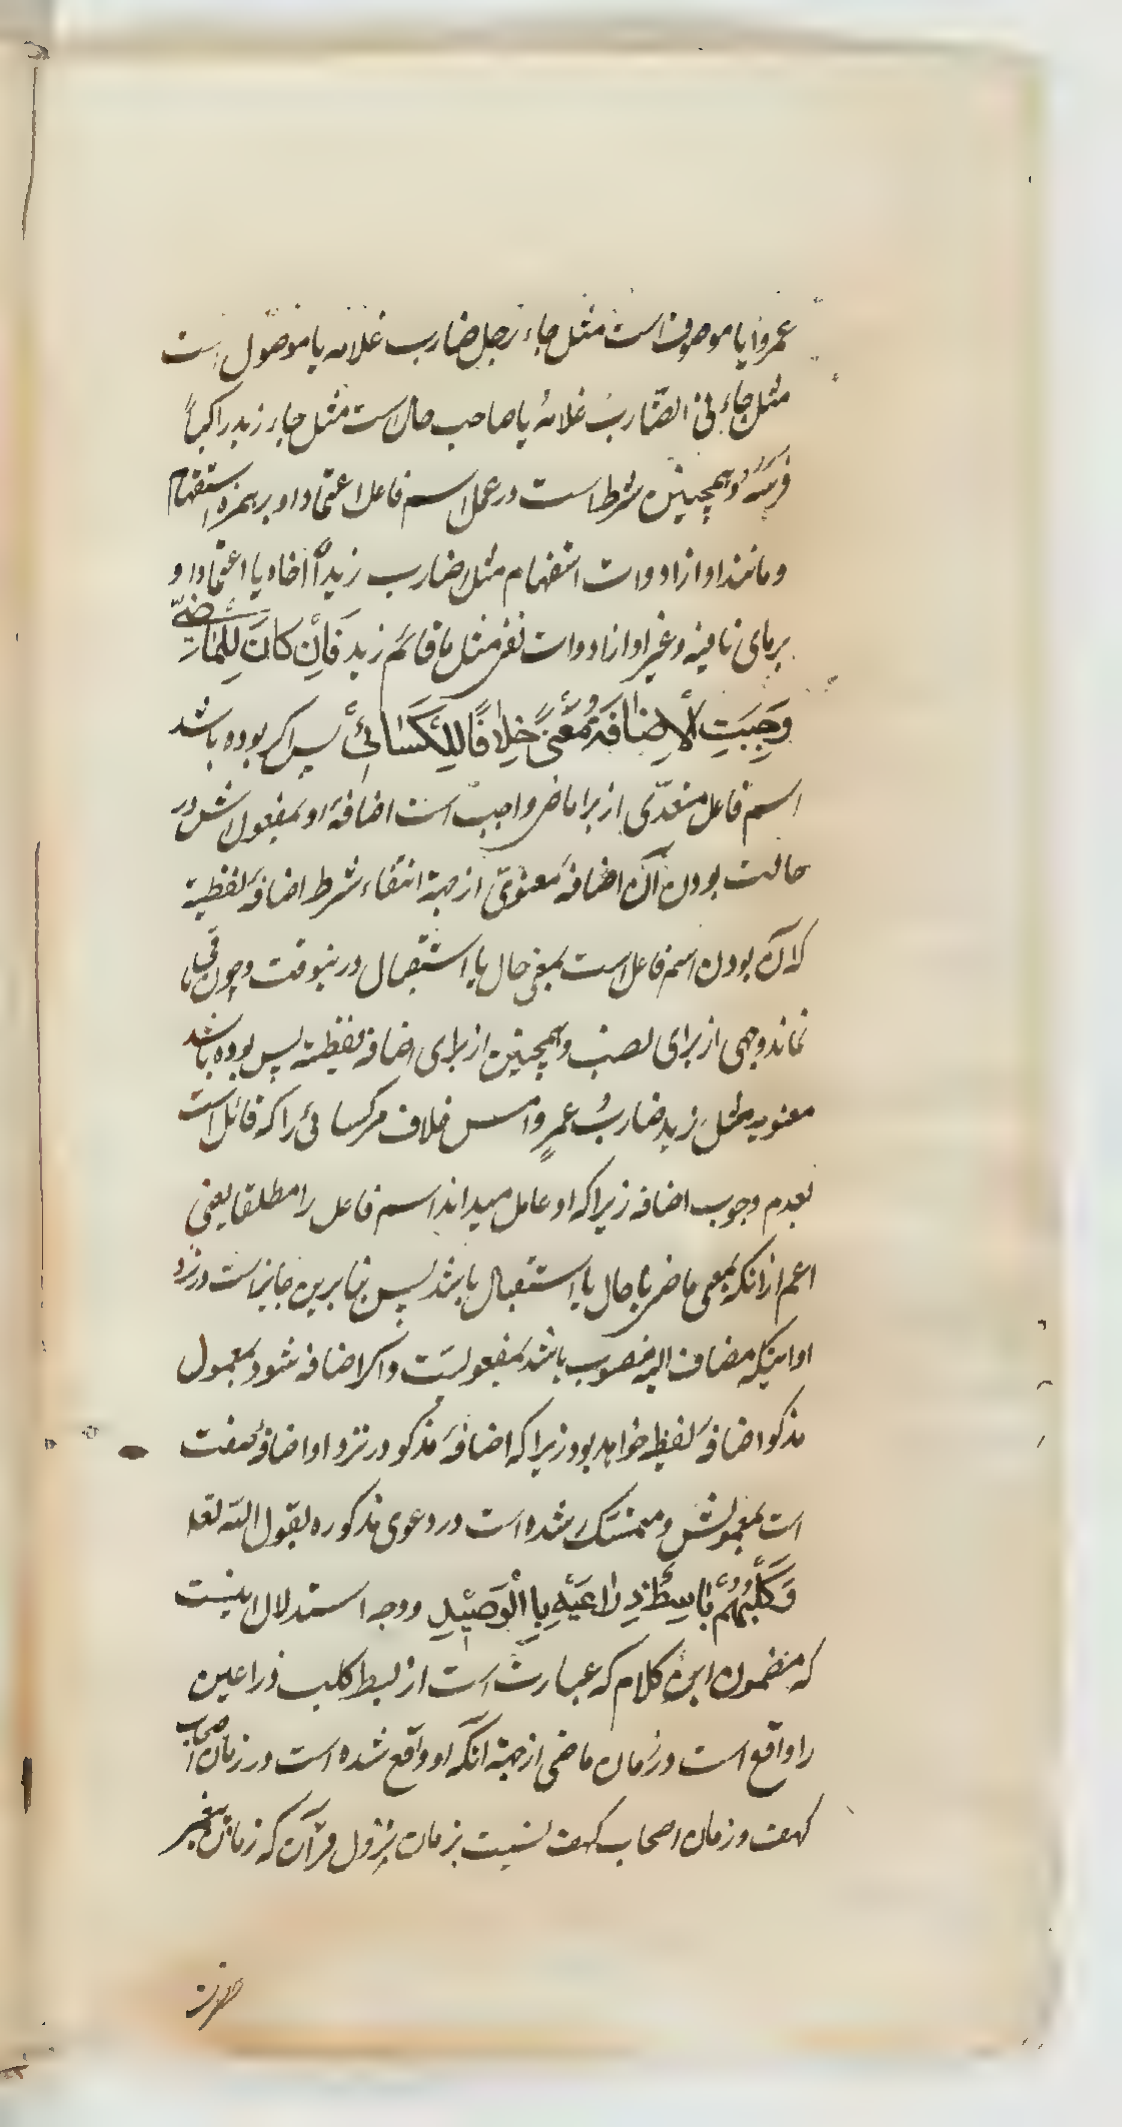 عمروا یا موصوف است مثل جاء رجل ضارب غلامه یا موصول است
مثل جاءنی الضّارب غلامهُ یا صاحب حال است مثل جاء زید راکباً
فرسَهُ و همچنین شرط است در عمل اسم فاعل اعتماد او بر همزه استفهام
و مانند او از ادوات استفهام مثل اضارب زیداً اخاه یا اعتماد او
بر مای نافیه و غیر او از ادوات نفی مثل ما قائم زید فَاِنْ کانَ لِلْماضِیّ
وَجَبَتِ الْاِضافَهُ مَعْنیً خِلافًا لِلْکَسائیْ پس اکر بوده باشد
اسم فاعل متعدّی از برا ماضی واجب است اضافهٔ او بمفعولش در
حالت بودن آن اضافه معنوی از جهة انتفاء شرط اضافه لفظیة
که آن بودن اسم فاعل است بمعنی حال یا استقبال در ینوقت و چون باقی
نماند وجهی از برای نصب و همچنین از برای اضافه لفظیة پس بوده باشد
معنویه مثل زید ضاربُ عمرٍو امس خلاف مر کسائی را که قائل است
بعدم وجوب اضافه زیرا که او عامل میداند اسم فاعل را مطلقا یعنی
اعم از انکه بمعنی ماضی یا حال یا استقبال باشد پس بنابرین جایز است در نزد
او اینکه مضاف الیه منصوب باشد بمفعولیت و اکر اضافه شود بمعمول
مذکو اضافه لفظیه خواهد بود زیرا که اضافهٔ مذکور در نزد او اضافهٔ صفت
است بمعمولش و متمسّک شده است در دعوی مذکوره بقول اللّه تعا
وَکَلْبُهُمْ باسِطٌ ذِراعَیْهِ بِالْوَصیْدِ و وجه استدلال اینست
که مضمون این کلام که عبارت است از بسط کلب ذراعین
را واقع است در زمان ماضی از جهة آنکه او واقع شده است در زمان اصحاب
کهف و زمان اصحاب کهف نسبت بزمان نزول قرآن که زمان پیغمبر